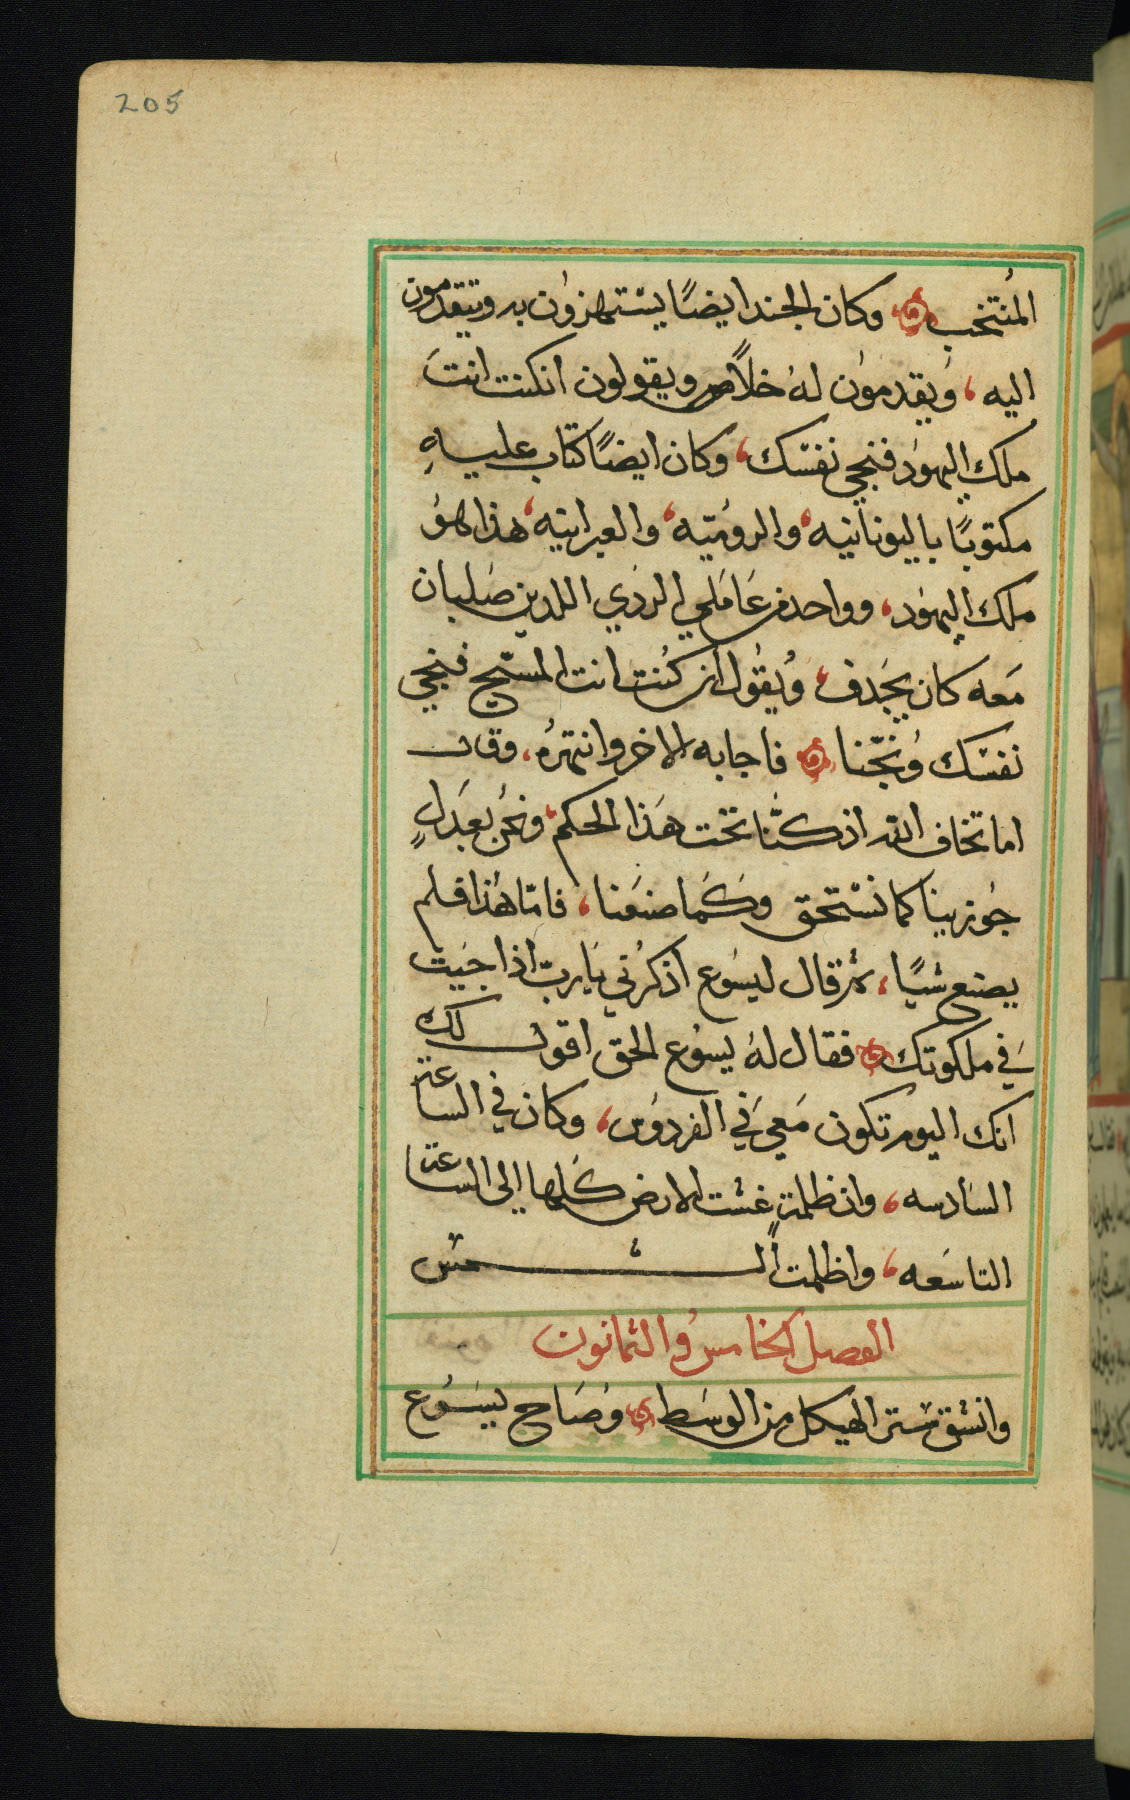 205
المُنتخب وكان الجند ايضًا يستهزون به ويتقدمون
اليه، ويقدمون لهُ خلاً ويقولون ان كنت انتَ
ملك اليهود فنجي نفسَك، وكان ايضًا كتاب عليهِ
مكتوبًا باليونانيه، والروميّه، والعبرانيه، هذا هوُ
ملك اليهود، وواحد من عَاملي الردَي اللدين صَلبان
مَعه كان يجَدف، ويقُول ان كُنت انت المسّيح فنجي
نفسَك ونجّنا فاجابه الاخر وانتهرهُ، وقال
اما تخاف الله اذ كنّا تحت هَذا الحكم، ونحُن بعَدلٍ
جُوزينا كما نستحق وكَما صنعَنا، فامّا هَذا فلم
يصنع شيًا، ثمرقال ليسَوع اذكرُني يَا ربّ اذا جَيت
في ملكوتك فقال لهُ يسوُع الحق اقول لك
انك اليوم تكون مَعي في الفردوَس، وكان في الساعة
السَادسه، واذ ظلمةٍ غشت الارض كَلها الي الساعة
التاسَعه، واظلمت الشمس
الفصل الخامس والثمانون
وانشق ستر الهيكل من الوسَط وصَاح يسَوُع